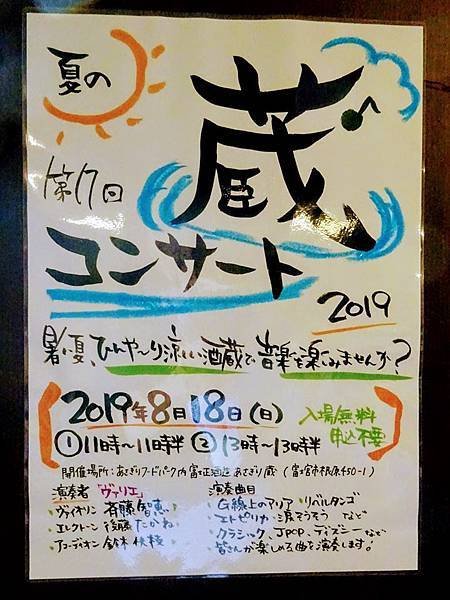 夏の
蔵
第17回
コンサート
2019
暑い夏、ひんや〜り涼しい酒蔵で音楽を楽しみませんか?
2019年8月18日(日) 入場無料
①11時〜11時半 ②13時〜13時半 申込不要
開催場所:あさぎりフードパーク内 富士正酒造 あさぎり蔵 (富士宮市根原450-1)
演奏者「ヴァリエ」
・ヴァイオリン 斉藤智恵
・エレクトーン 後藤たかね
・アコーディオン 鈴木
演奏曲目
・G線上のアリア ・リベルタンゴ
・エトピリカ ・涙そうそう など
・クラシック、JPOP、ディズニーなど
皆さんが楽しめる曲を演奏します!